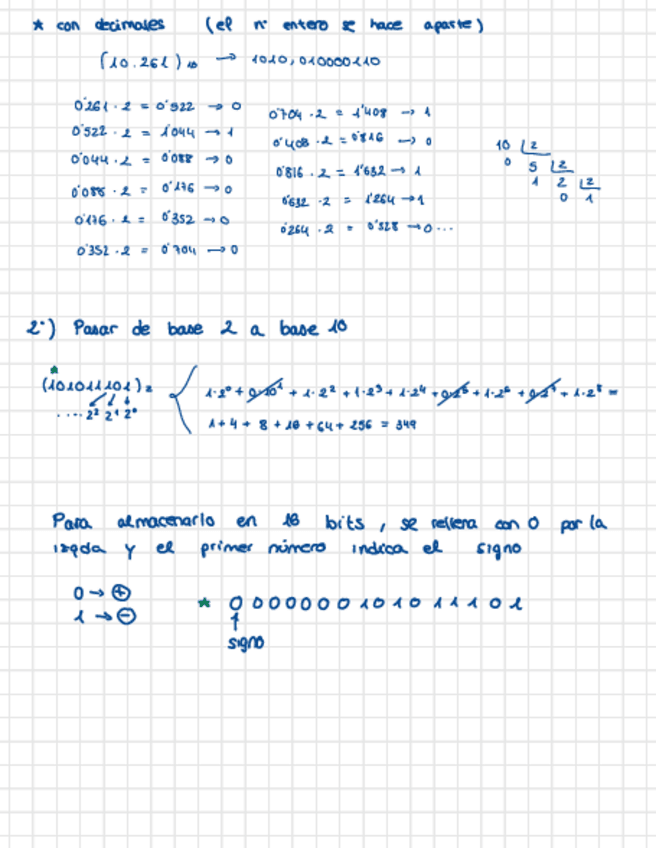 * con decimales (el nº entero se hace aparte)
(10.261)10 → 1010,010000110
0'261 · 2 = 0'522 → 0
0'522 · 2 = 1'044 → 1
0'044 · 2 = 0'088 → 0
0'088 · 2 = 0'176 → 0
0'176 · 2 = 0'352 → 0
0'352 · 2 = 0'704 → 0
0'704 · 2 = 1'408 → 1
0'408 · 2 = 0'816 → 0
0'816 · 2 = 1'632 → 1
0'632 · 2 = 1'264 → 1
0'264 · 2 = 0'528 → 0...
10 |2
0 5 |2
1 2 |2
0 1
2º) Pasar de base 2 a base 10
*
(101011101)2
.... 2² 2¹ 2⁰
1·2⁰ + 0·20¹ + 1·2² + 1·2³ + 1·2⁴ + 0·2⁵ + 1·2⁶ + 0·2⁷ + 1·2⁸ =
1 + 4 + 8 + 16 + 64 + 256 = 349
Para almacenarlo en 16 bits, se rellena con 0 por la
izqda y el primer número indica el signo
0 → ⊕
1 → ⊖
* 0 0 0 0 0 0 0 1 0 1 0 1 1 1 0 1
↑
signo